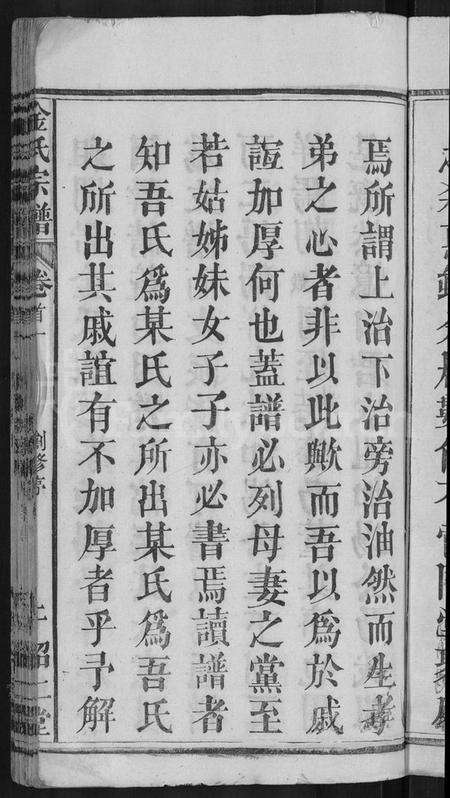 焉所謂上治下治旁治油然而生孝
弟之心者非以此歟而吾以爲於戚
誼加厚何也蓋譜必列母妻之黨至
若姑姊妹女子子亦必書焉讀譜者
知吾氏爲某氏之所出某氏爲吾氏
之所出其戚誼有不加厚者乎予解
金氏宗譜
卷首一